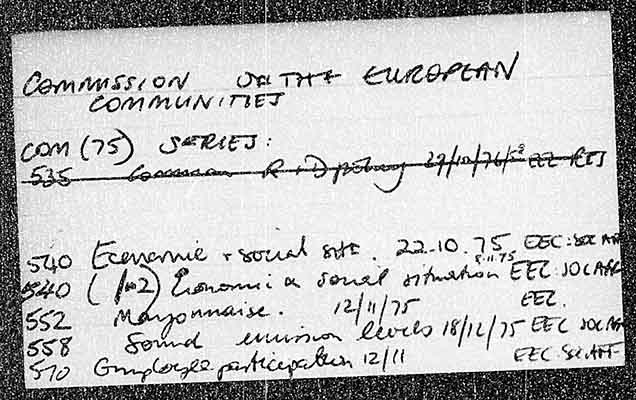 COMMISSION OF THE EUROPEAN
COMMUNITIES
COM (75) SERIES:
535 Common R + D policy 29/10/76 EEC RES
540 Economic + social sit. 22.10.75 EEC: SOC AFF
540 (1+2) Economic & social situation 5.11.75 EEC: SOC AFF
552 Mayonnaise. 12/11/75 EEC.
558 Sound emission levels 18/12/75 EEC SOC AF
570 Employee participation 12/11 EEC: SOC AFF